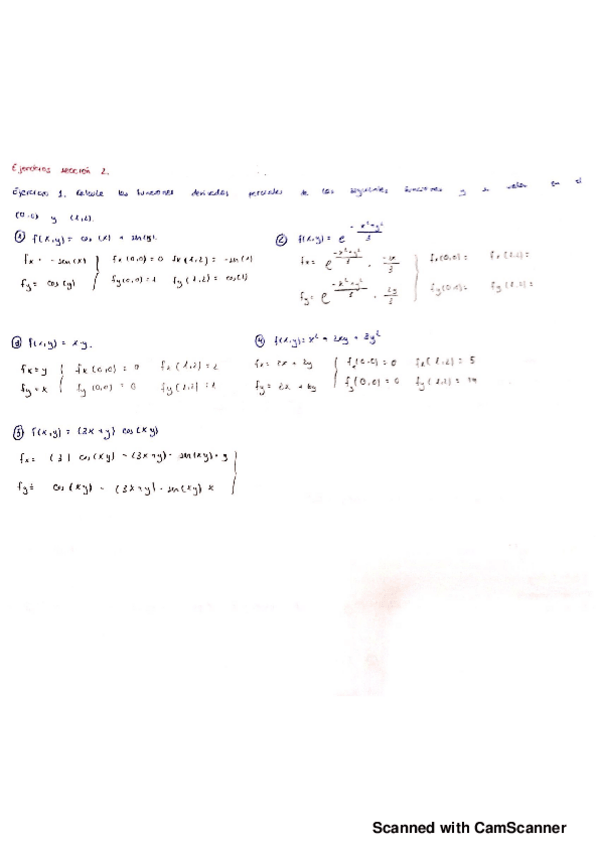 Ejercicios sección 2.
Ejercicio 1. Calcule las funciones derivadas parciales de las siguientes funciones y su valor en el
(0,0) y (1,2).
① f(x,y) = cos (x) + sen(y).
fx = - sen(x) fx(0,0) = 0 fx(1,2) = -sen(1)
fy = cos(y) fy(0,0) = 1 fy(1,2) = cos(2)
② f(x,y) = e^{-\frac{x²+y²}{3}}
fx = e^{-\frac{x²+y²}{3}} · \frac{-2x}{3} fx(0,0) = fx(1,2) =
fy = e^{-\frac{x²+y²}{3}} · \frac{2y}{3} fy(0,0) = fy(1,2) =
③ f(x,y) = xy.
fx = y fx(0,0) = 0 fx(1,2) = 2
fy = x fy(0,0) = 0 fy(1,2) = 1
④ f(x,y) = x² + 2xy + 3y²
fx = 2x + 2y fx(0,0) = 0 fx(1,2) =
fy = 2x + 6y fy(0,0) = 0 fy(1,2) = 14
⑤ f(x,y) = (3x+y) cos(xy)
fx = (3) cos(xy) - (3x+y) · sen(xy) · y
fy = cos(xy) - (3x+y) · sen(xy) x
Scanned with CamScanner